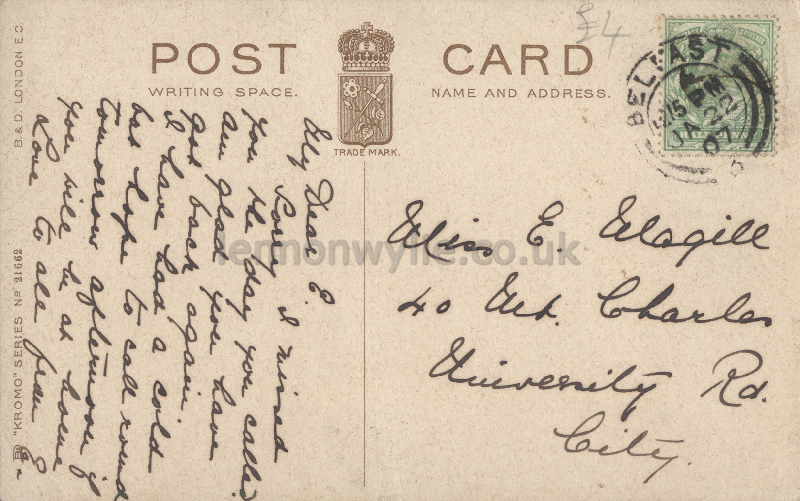 £4
POST CARD
WRITING SPACE.
NAME AND ADDRESS.
TRADE MARK.
B. & D. LONDON E.C.
"KROMO" SERIES No 21662
BELFAST
4 15 PM
JA 22
07
My Dear E.
Sorry I missed
you the day you called
am glad you have
got back again
I have had a cold
but hope to call round
tomorrow afternoon if
you will be at home
Love to all from
Miss E. Magill
40 Mt. Charles
University Rd.
City.
lennonwylie.co.uk